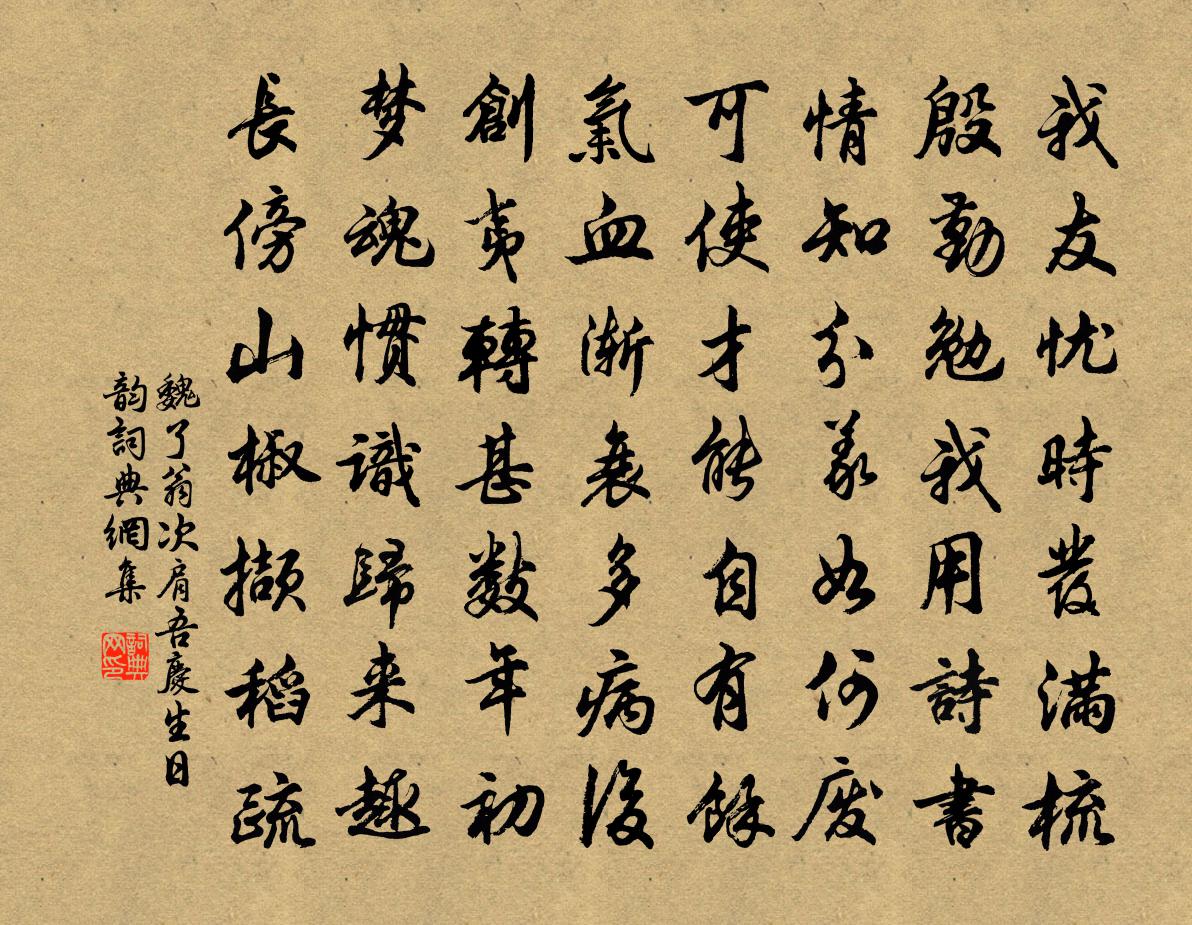 我友忧時發滿梳
殷勤勉我用詩書
情知分義如何废
可使才能自有餘
氣血漸衰多病後
創夷轉甚數年初
梦魂惯識歸来趣
長傍山椒擷稻疏
魏了翁次肩吾慶生日
韵詞典網集
詞典网印